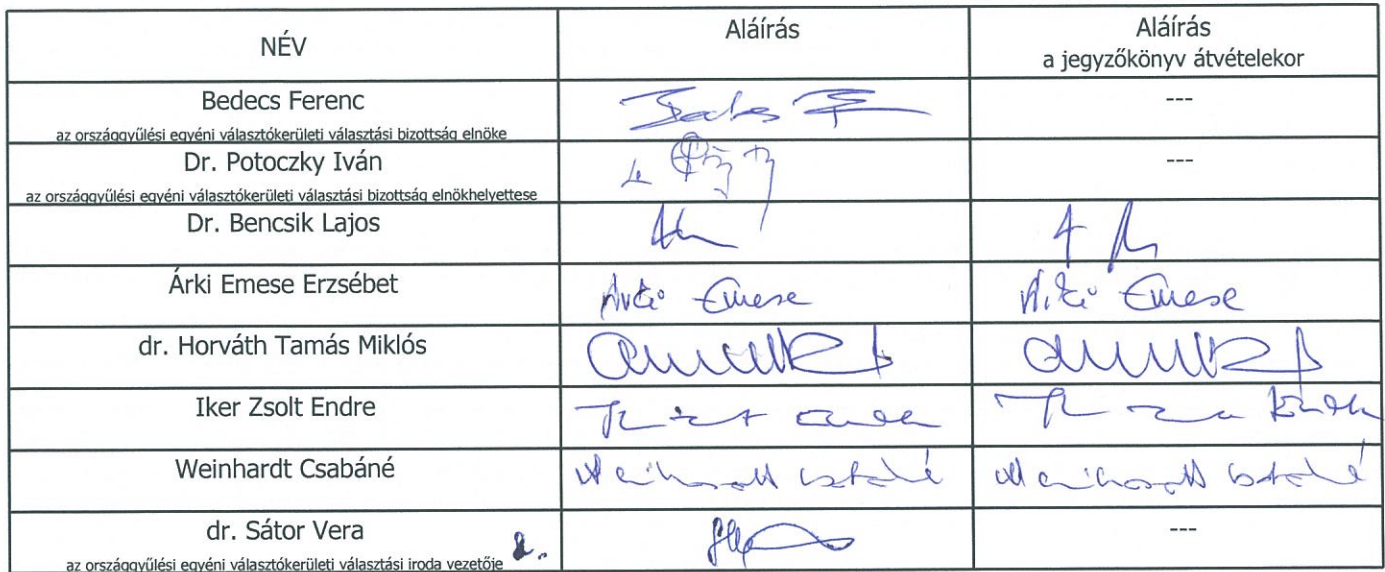 NÉV
Aláírás
Aláírás
a jegyzőkönyv átvételekor
Bedecs Ferenc
az országgyűlési egyéni választókerületi választási bizottság elnöke
---
Dr. Potoczky Iván
az országgyűlési egyéni választókerületi választási bizottság elnökhelyettese
---
Dr. Bencsik Lajos
Árki Emese Erzsébet
Árki Emese
Árki Emese
dr. Horváth Tamás Miklós
Iker Zsolt Endre
Weinhardt Csabáné
Weinhardt Csabáné
Weinhardt Csabáné
dr. Sátor Vera
az országgyűlési egyéni választókerületi választási iroda vezetője
---